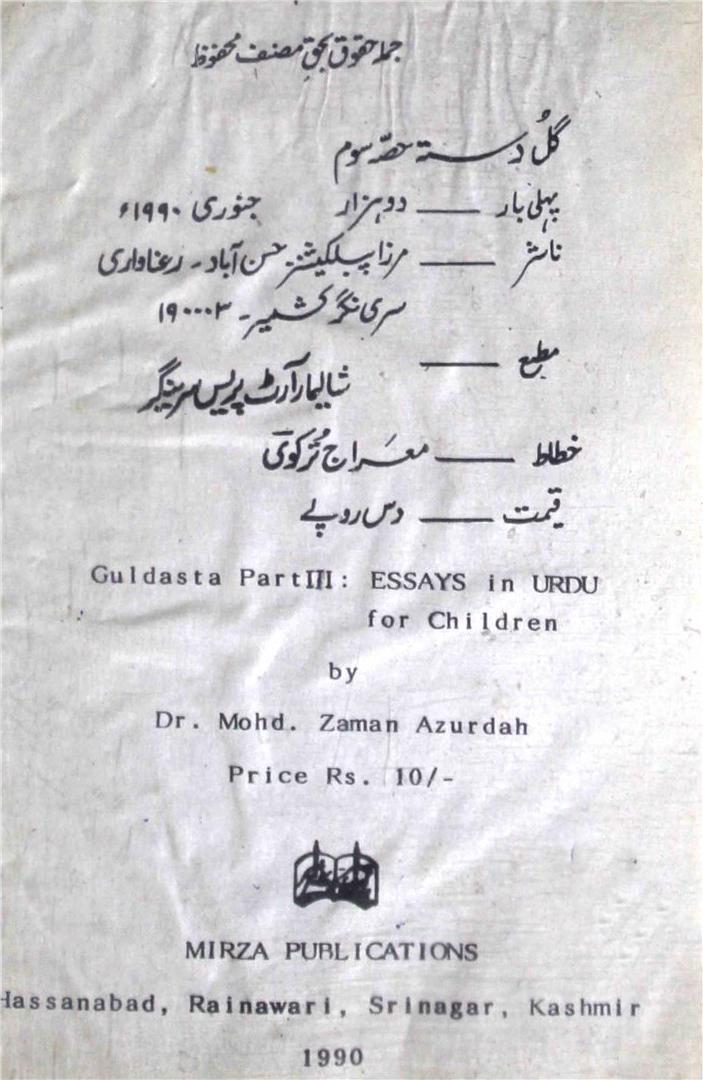 جملہ حقوق بحقِ مصنف محفوظ
گُل دستہ حصّہ سوم
پہلی بار — دو ہزار جنوری ۱۹۹۰ء
ناشر — مرزا پبلکیشنز حسن آباد۔ رعناواری
سری نگر کشمیر۔ ۱۹۰۰۰۳
مطبع — شالیمار آرٹ پریس سرینگر
خطاط — معراج تُرکوی
قیمت — دس روپے
Guldasta Part III: ESSAYS in URDU
for Children
by
Dr. Mohd. Zaman Azurdah
Price Rs. 10/-
MIRZA PUBLICATIONS
Hassanabad, Rainawari, Srinagar, Kashmir
1990